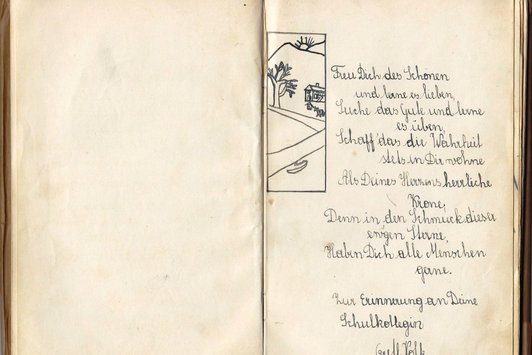 Freu Dich des Schönen
und lerne es lieben,
Suche das Gute und lerne
es üben,
Schaff' das die Wahrheit
stets in Dir wohne
Als Deines Herzens herrliche
Krone,
Denn in den Schmuck dieser
ew'gen Sterne,
Haben Dich alle Menschen
gerne.
Zur Erinnerung an Deine
Schulkollegin